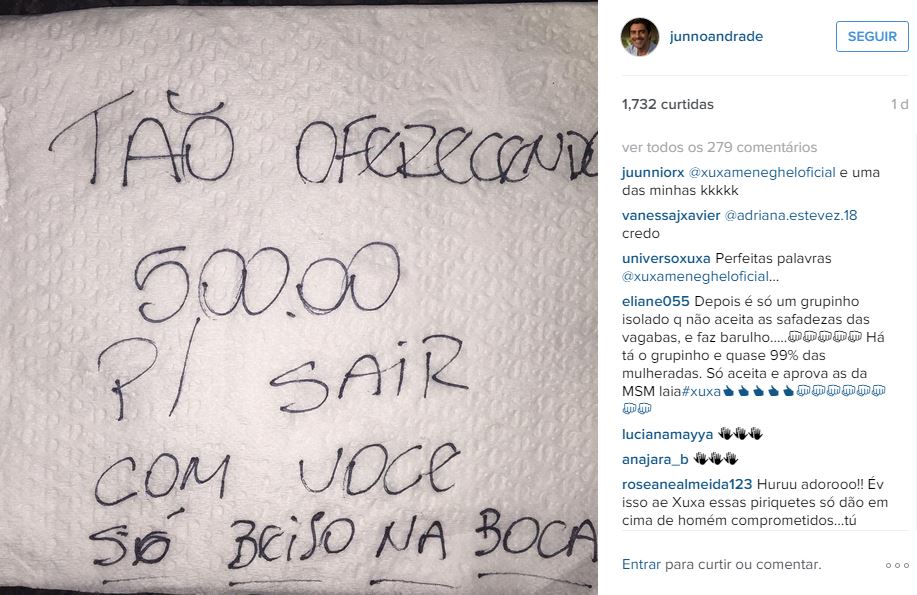 TAÕ OFEREÇENDO
500.00
P/ SAIR
COM VOCE
SÓ BEISO NA BOCA
junnoandrade
SEGUIR
1,732 curtidas
1 d
ver todos os 279 comentários
juunniorx @xuxamenegheloficial e uma
das minhas kkkkk
vanessajxavier @adriana.estevez.18
credo
universoxuxa Perfeitas palavras
@xuxamenegheloficial...
eliane055 Depois é só um grupinho
isolado q não aceita as safadezas das
vagabas, e faz barulho.....👊👊👊👊👊 Há
tá o grupinho e quase 99% das
mulheradas. Só aceita e aprova as da
MSM laia#xuxa👍👍👍👍👍👊👊👊👊👊👊
👊👊
lucianamayya 👋👋👋
anajara_b 👋👋👋
roseanealmeida123 Huruu adorooo!! Év
isso ae Xuxa essas piriquetes só dão em
cima de homém comprometidos...tú
Entrar para curtir ou comentar.